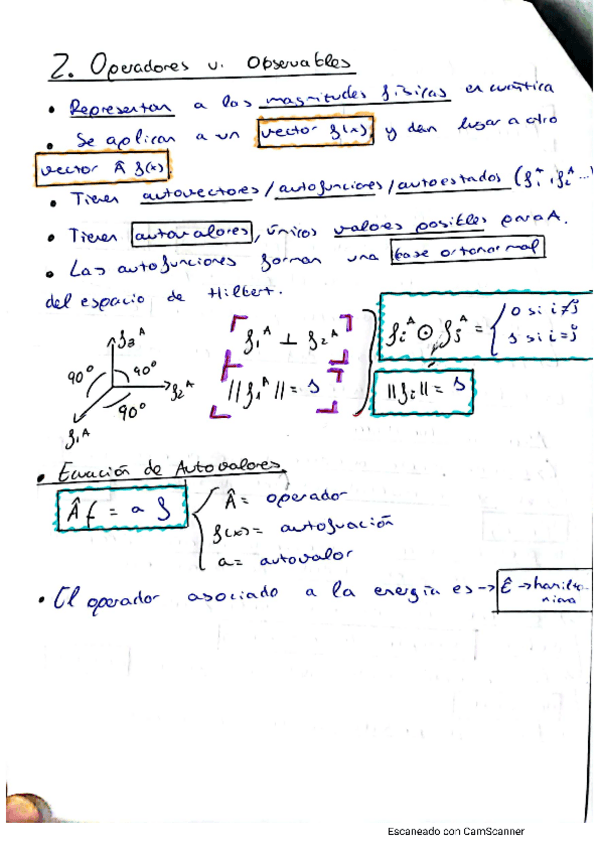 2. Operadores u. Observables
• Representan a las magnitudes físicas en cuántica
• Se aplican a un vector f(x) y dan lugar a otro
vector Â f(x)
• Tienen autovectores / autofunciones / autoestados (f₁ᴬ, f₂ᴬ ...)
• Tienen autovalores, únicos valores posibles para A.
• Las autofunciones forman una base ortonormal
del espacio de Hilbert.
f₃ᴬ
90º 90º 90º
f₂ᴬ
f₁ᴬ
f₁ᴬ ⊥ f₂ᴬ
||f₁ᴬ|| = 1
fᵢᴬ ⊙ fⱼᴬ = { 0 si i≠j
1 si i=j
||fᵢ|| = 1
• Ecuación de Autovalores
Â f = a f
Â = operador
f(x) = autofunción
a = autovalor
• El operador asociado a la energía es → Ê → hamilto-
niano
Escaneado con CamScanner